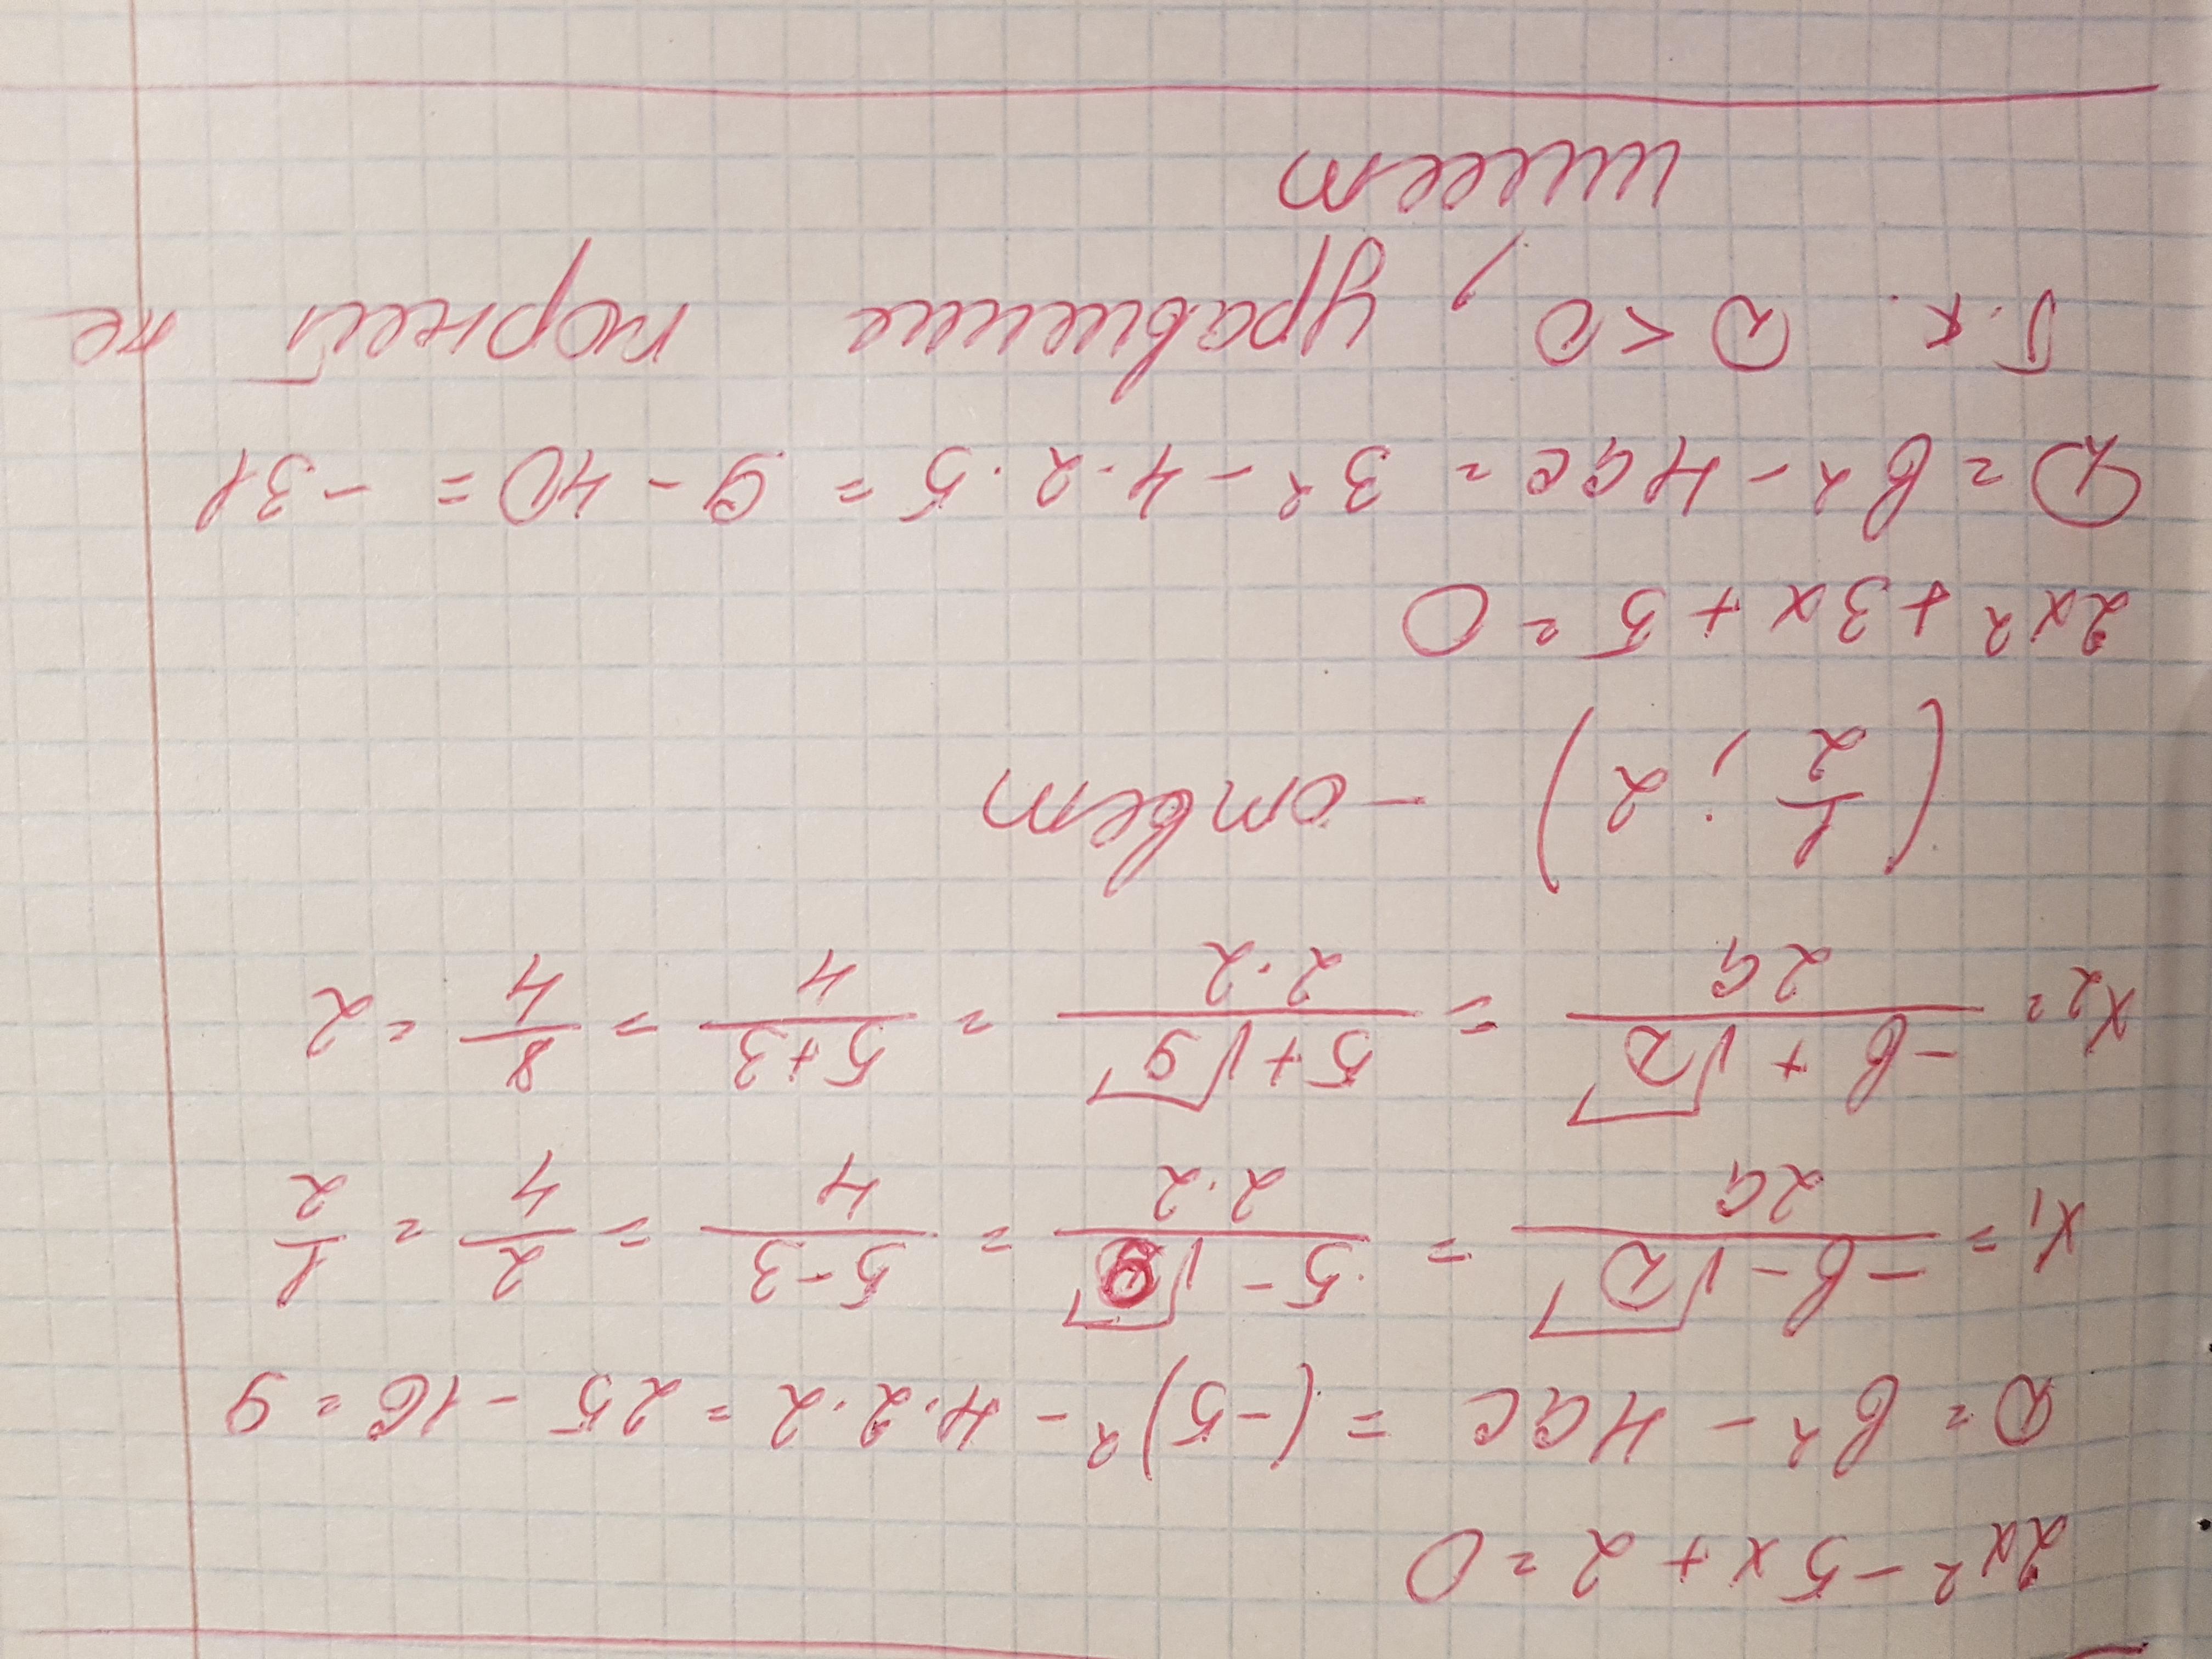 2x² - 5x + 2 = 0
D = b² - 4ac = (-5)² - 4·2·2 = 25 - 16 = 9
x₁ = (-b - √D)/(2a) = (5 - √9)/(2·2) = (5-3)/4 = 2/4 = 1/2
x₂ = (-b + √D)/(2a) = (5 + √9)/(2·2) = (5+3)/4 = 8/4 = 2
(1/2; 2) - ответ
2x² + 3x + 5 = 0
D = b² - 4ac = 3² - 4·2·5 = 9 - 40 = -31
Т.к. D < 0, уравнение корней не
имеет